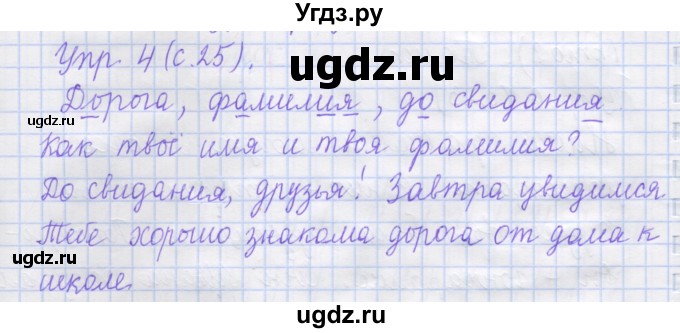 Угдз.ру
Упр. 4 (с.25).
ugdz.ru
Дорога, фамилия, до свидания
ugdz.ru
ugdz.ru
Как твоё имя и твоя фамилия?
До свидания, друзья! Завтра увидимся
ugdz.ru
ugdz.ru
Тебе хорошо знакома дорога от дома к
ugdz.ru
школе.
ugdz.ru